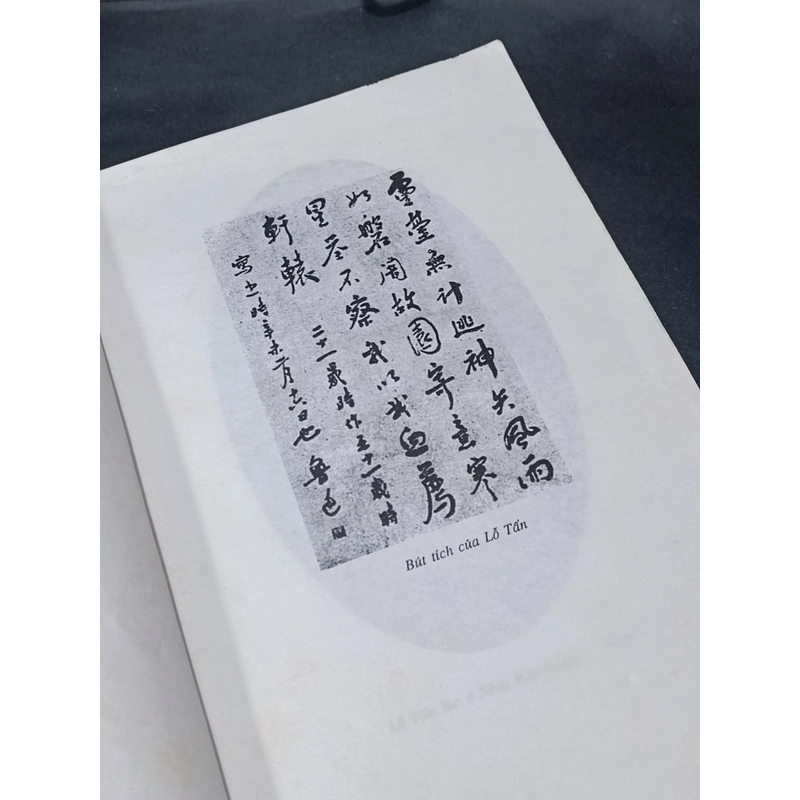 靈臺無計逃神矢風雨
如磐闇故園寄意寒
星荃不察我以我血薦
軒轅 二十一歲時作五十一歲時
寫之時辛未二月十六日也 魯迅
Bút tích của Lỗ Tấn